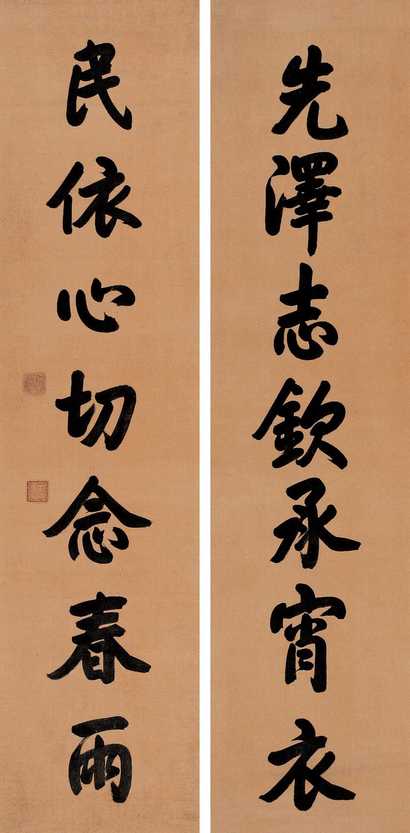 先澤志欽承宵衣
民依心切念春雨